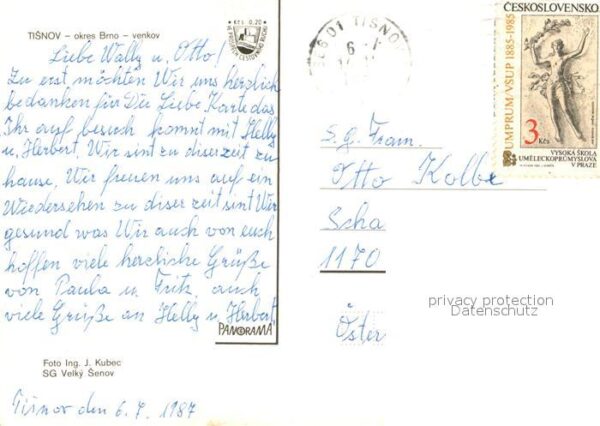 TIŠNOV – okres Brno – venkov
Kčs 0,20
Liebe Wally u. Otto!
Zu erst möchten Wir uns herzlich
bedanken für Die Liebe Karte das
Ihr auf besuch kommt mit Helly
u. Herbert. Wir sint zu diserzeit zu
hause, Wir freuen uns auf ein
Wiedersehen zu diser zeit sint Wir
gesund was Wir auch von euch
hoffen viele herzliche Grüße
von Paula u. Fritz, auch
viele Grüße an Helly u. Herbert.
PANORAMA
Foto Ing. J. Kubec
SG Velký Šenov
Tišnov den 6. 7. 1987
01 TIŠNOV
ČESKOSLOVENSKO
UMPRUM/VŠUP 1885-1985
3 Kčs
VYSOKÁ ŠKOLA
UMĚLECKOPRŮMYSLOVÁ
V PRAZE
S. g. Fram.
Otto Kolbe
1170
Öster
privacy protection
Datenschutz